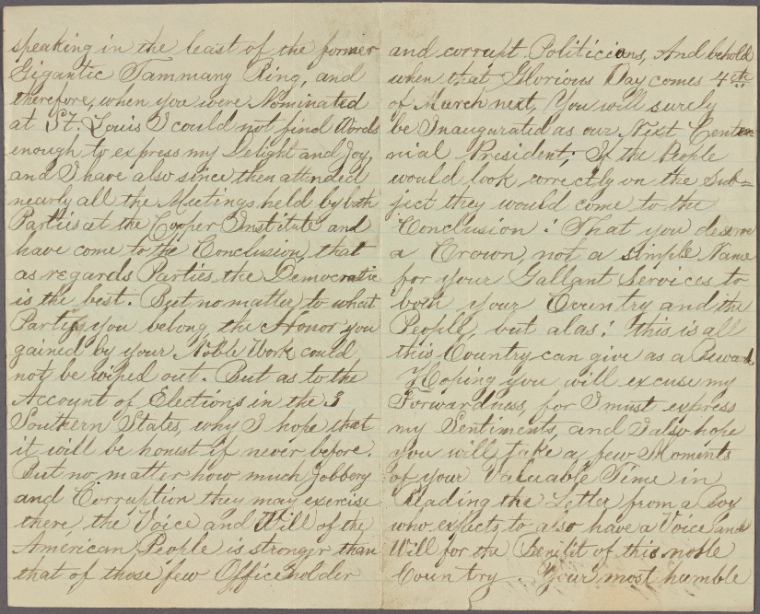 speaking in the least of the former
Gigantic Tammany Ring, and
therefore, when you were Nominated
at St. Louis I could not find Words
enough to express my Delight and Joy,
and I have also since then attended
nearly all the Meetings held by both
Parties at the Cooper Institute and
have come to the Conclusion, that
as regards Parties, the Democratic
is the best. But no matter to what
Party you belong the Honor you
gained by your Noble Work could
not be wiped out. But as to the
Account of Elections in the 3
Southern States, why I hope that
it will be honest if never before.
But no matter how much Jobbery
and Corruption they may exercise
there, the Voice and Will of the
American People is stronger than
that of those few Officeholder
and corrupt Politicians, And behold
when that Glorious Day comes 4th
of March next, You will surely
be Inaugurated as our Next Centen
nial President; If the People
would look correctly on the Sub=
ject they would come to the
Conclusion: That you deserve
a Crown, not a simple Name
for your Gallant Services to
both your Country and the
People, but alas! this is all
this Country can give as a Reward.
Hoping you will excuse my
Forwardness, for I must express
my Sentiments, and I also hope
you will take a few Moments
of your Valuable Time in
Reading the Letter from a Boy
who expects to also have a Voice and
Will for the Benefit of this noble
Country. Your most humble